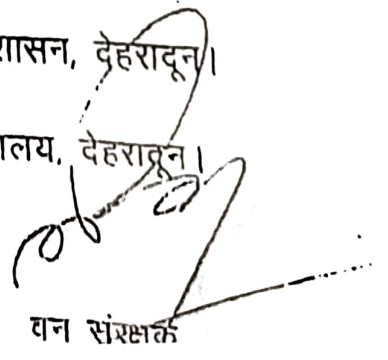 शासन, देहरादून।
ालय, देहरादून।
वन संरक्षक